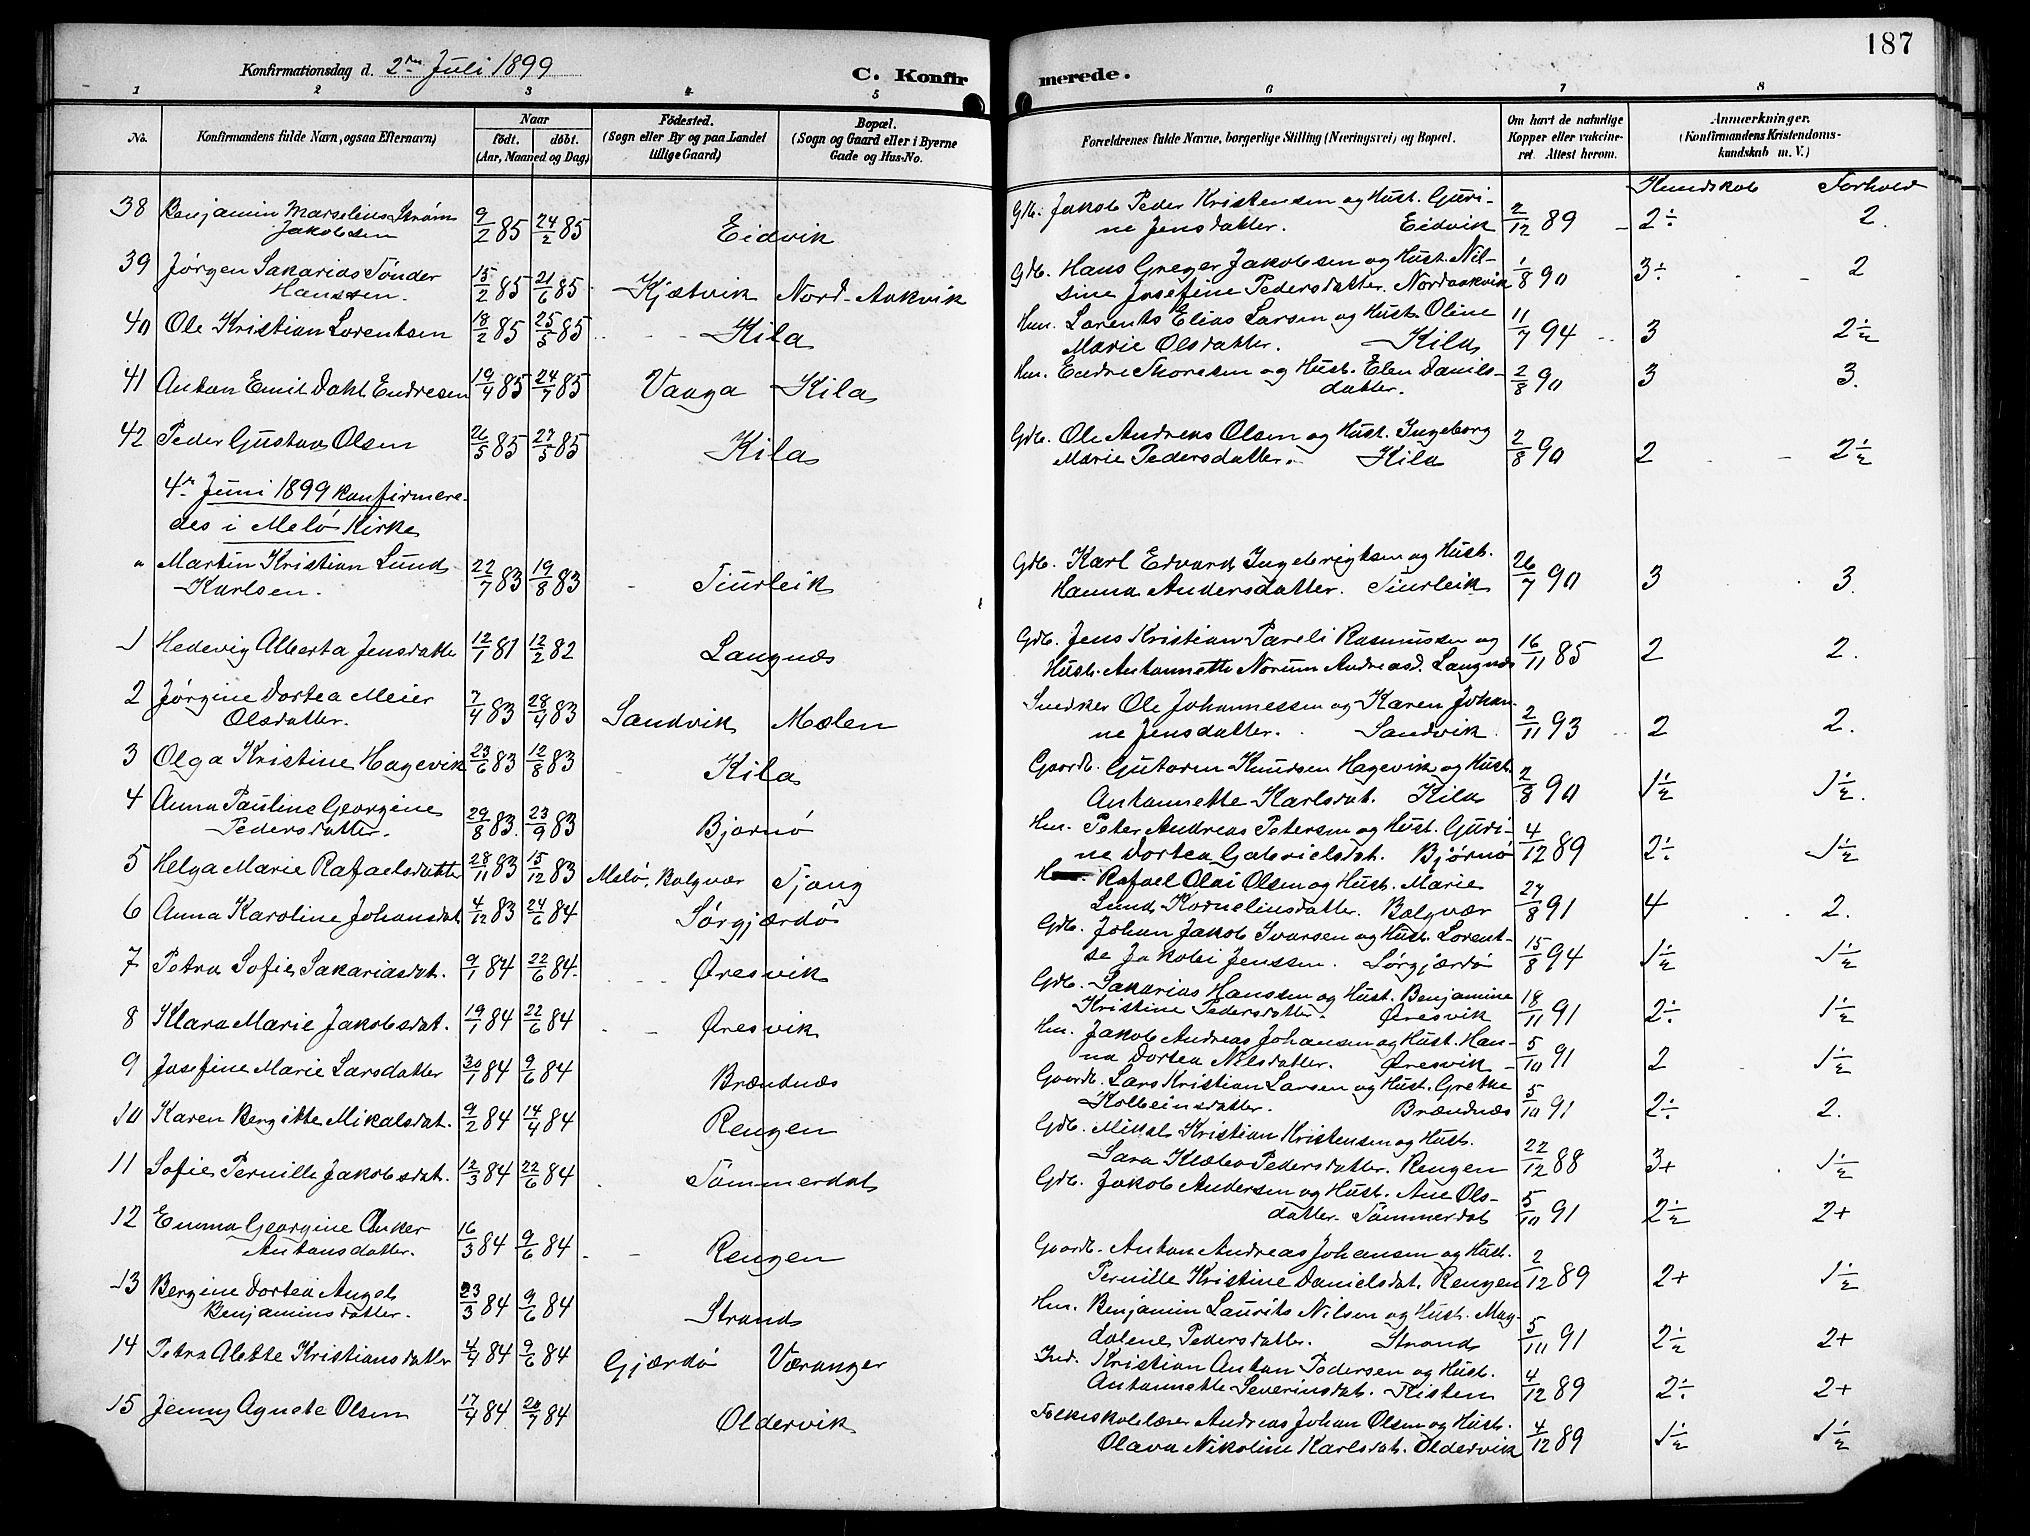 187
Konfirmationsdag d. 2den Juli 1899
C. Konfirmerede.
1 2 3 4 5 6 7 8
No.
Konfirmandens fulde Navn, ogsaa Efternavn)
Naar
födt. döbt.
(Aar, Maaned og Dag)
Födested.
(Sogn eller By og paa Landet
tillige Gaard)
Bopæl.
(Sogn og Gaard eller i Byerne
Gade og Hus-No.
Forældrenes fulde Navne, borgerlige Stilling (Næringsvei) og Bopæl.
Om havt de naturlige
Kopper eller vakcine-
ret. Attest herom.
Anmærkninger.
(Konfirmandens Kristendoms-
kundskab m. V.)
Kundskab Forhold
38 Benjamin Marselius Strøm
Jakobsen 9/2 85 24/2 85 Eidvik
Gb. Jakob Peder Kristensen og Hust. Guri-
ne Jensdatter. Eidvik 2/12 89 2÷ 2.
39 Jørgen Sakarias Tønder
Hanssen. 15/2 85 21/6 85 Kjætvik Nord-Aakvik
Gdb. Hans Greger Jakobsen og Hust. Nil-
sine Josefine Pedersdatter. Nordaakvik 1/8 90 3÷ 2
40 Ole Kristian Lorentsen 18/2 85 25/5 85 Kila
Hm. Lorents Elias Larsen og Hust. Oline
Marie Olsdatter. Kila 11/7 94 3 2½
41 Anton Emil Dahl Endresen 19/4 85 24/7 85 Vaaga Kila
Hm. Endre Thoresen og Hust. Elen Daniels-
datter. 2/8 90 3 3.
42 Peder Gustav Olsen 26/5 85 27/5 85 Kila
Gdb. Ole Andreas Olsen og Hust. Ingeborg
Marie Pedersdatter. Kila 2/8 90 2 2½
4de Juni 1899 konfirmere-
des i Melö Kirke
" Martin Kristian Lund
Karlsen. 22/7 83 19/8 83 Tiurleik
Gdb. Karl Edvard Ingebrigtsen og Hust.
Hanna Andersdatter. Tiurleik 26/7 90 3 3.
1 Hedevig Alberta Jensdatte 12/1 81 12/2 82 Langnæs
Gdb. Jens Kristian Pareli Rasmussen og
Hust. Antonnette Norum Andreasd. Langnæs 16/11 85 2 2.
2 Jørgine Dortea Meier
Olsdatter. 7/4 83 28/4 83 Sandvik Mælen
Snedker Ole Johannessen og Karen Johan-
ne Jensdatter. Sandvik 2/11 93 2 2.
3 Olga Kristine Hagevik 23/6 83 12/8 83 Kila
Gaardb. Gutorm Knudsen Hagevik og Hust.
Antonnette Karlsdat. Kila 2/8 90 1½ 1½.
4 Anna Pauline Georgine
Pedersdatter. 29/8 83. 23/9 83 Bjørnö
Hm. Peter Andreas Petersen og Hust. Guri-
ne Dortea Gabrielsdat. Bjørnö 4/12 89 2÷ 1½
5 Helga Marie Rafaelsdatte 28/11 83 15/12 83 Melö, Bolgvær Tjong
Rafael Olai Olsen og Hust. Marie
Lund Kornelinsdatter. Bolgvær 27/8 91 4 2.
6 Anna Karoline Johansdat. 4/12 83 24/6 84 Sørgjærdö
Gdb. Johan Jakob Ivarsen og Hust. Lorent-
se Jakobi Jenssen. Sørgjærdö 15/8 94 1½ 1½
7 Petra Sofie Sakariasdat. 9/1 84 22/6 84. Øresvik
Gdb. Sakarias Hanssen og Hust. Benjamine
Kristine Pedersdatter. Øresvik 18/11 91 2÷ 1½
8 Klara Marie Jakobsdat. 19/1 84 22/6 84 Øresvik
Hm. Jakob Andreas Johansen og Hust. Han-
na Dortea Nilsdatter. Øresvik 5/10 91 2 1½
9 Josefine Marie Larsdatter 30/1 84 9/6 84 Brændnæs
Gaardb. Lars Kristian Larsen og Hust. Grethe
Kolbeinsdatter. Brændnæs 5/10 91 2÷ 2.
10 Karen Bergitte Mikalsdat. 9/2 84 14/4 84 Rengen
Gdb. Mikal Kristian Kristensen og Hust.
Sara Klæboe Pedersdatter. Rengen 22/12 88 3+ 1½
11 Sofie Pernille Jakobsdat. 12/3 84 22/6 84 Tömmerdal
Gdb. Jakob Andersen og Hust. Ane Ols-
datter. Tömmerdal 5/10 91 2½ 2+
12 Emma Georgine Anker
Antonsdatter. 16/3 84 9/6 84 Rengen
Gaardb. Anton Andreas Johansen og Hust.
Pernille Kristine Danielsdat. Rengen 2/12 89 2+ 1½
13 Bergine Dortea Angel
Benjaminsdatter. 23/3 84 9/6 84 Strand
Hm. Benjamin Laurits Nilsen og Hust. Mag-
dalene Pedersdatter. Strand 5/10 91 2½ 2+
14 Petra Alette Kristiansdatter 4/4 84 9/6 84 Gjærdö Væranger
Ind. Kristian Anton Pedersen og Hust.
Antonnette Severinsdat. Kisten 4/12 89 2÷ 2+
15 Jenny Agnete Olsen 17/4 84 20/7 84 Oldervik
Folkeskolelærer Andreas Johan Olsen og Hust.
Olava Nikoline Karlsdat. Oldervik 4/12 89 1½ 1½